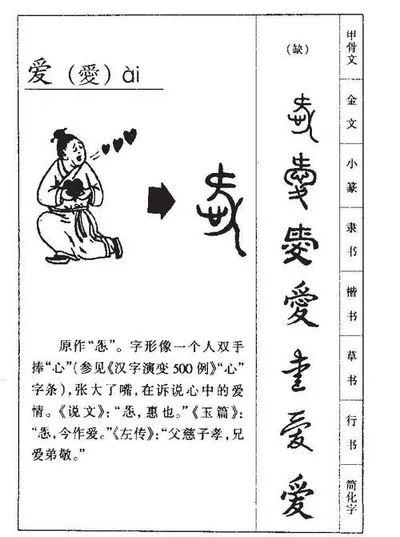 爱（愛）ài
原作“㤅”。字形像一个人双手
捧“心”（参见《汉字演变500例》“心”
字条），张大了嘴，在诉说心中的爱
情。《说文》：“㤅，惠也。”《玉篇》：
“㤅，今作爱。”《左传》：“父慈子孝，兄
爱弟敬。”
（缺）
愛
爱
甲骨文
金文
小篆
隶书
楷书
草书
行书
简化字